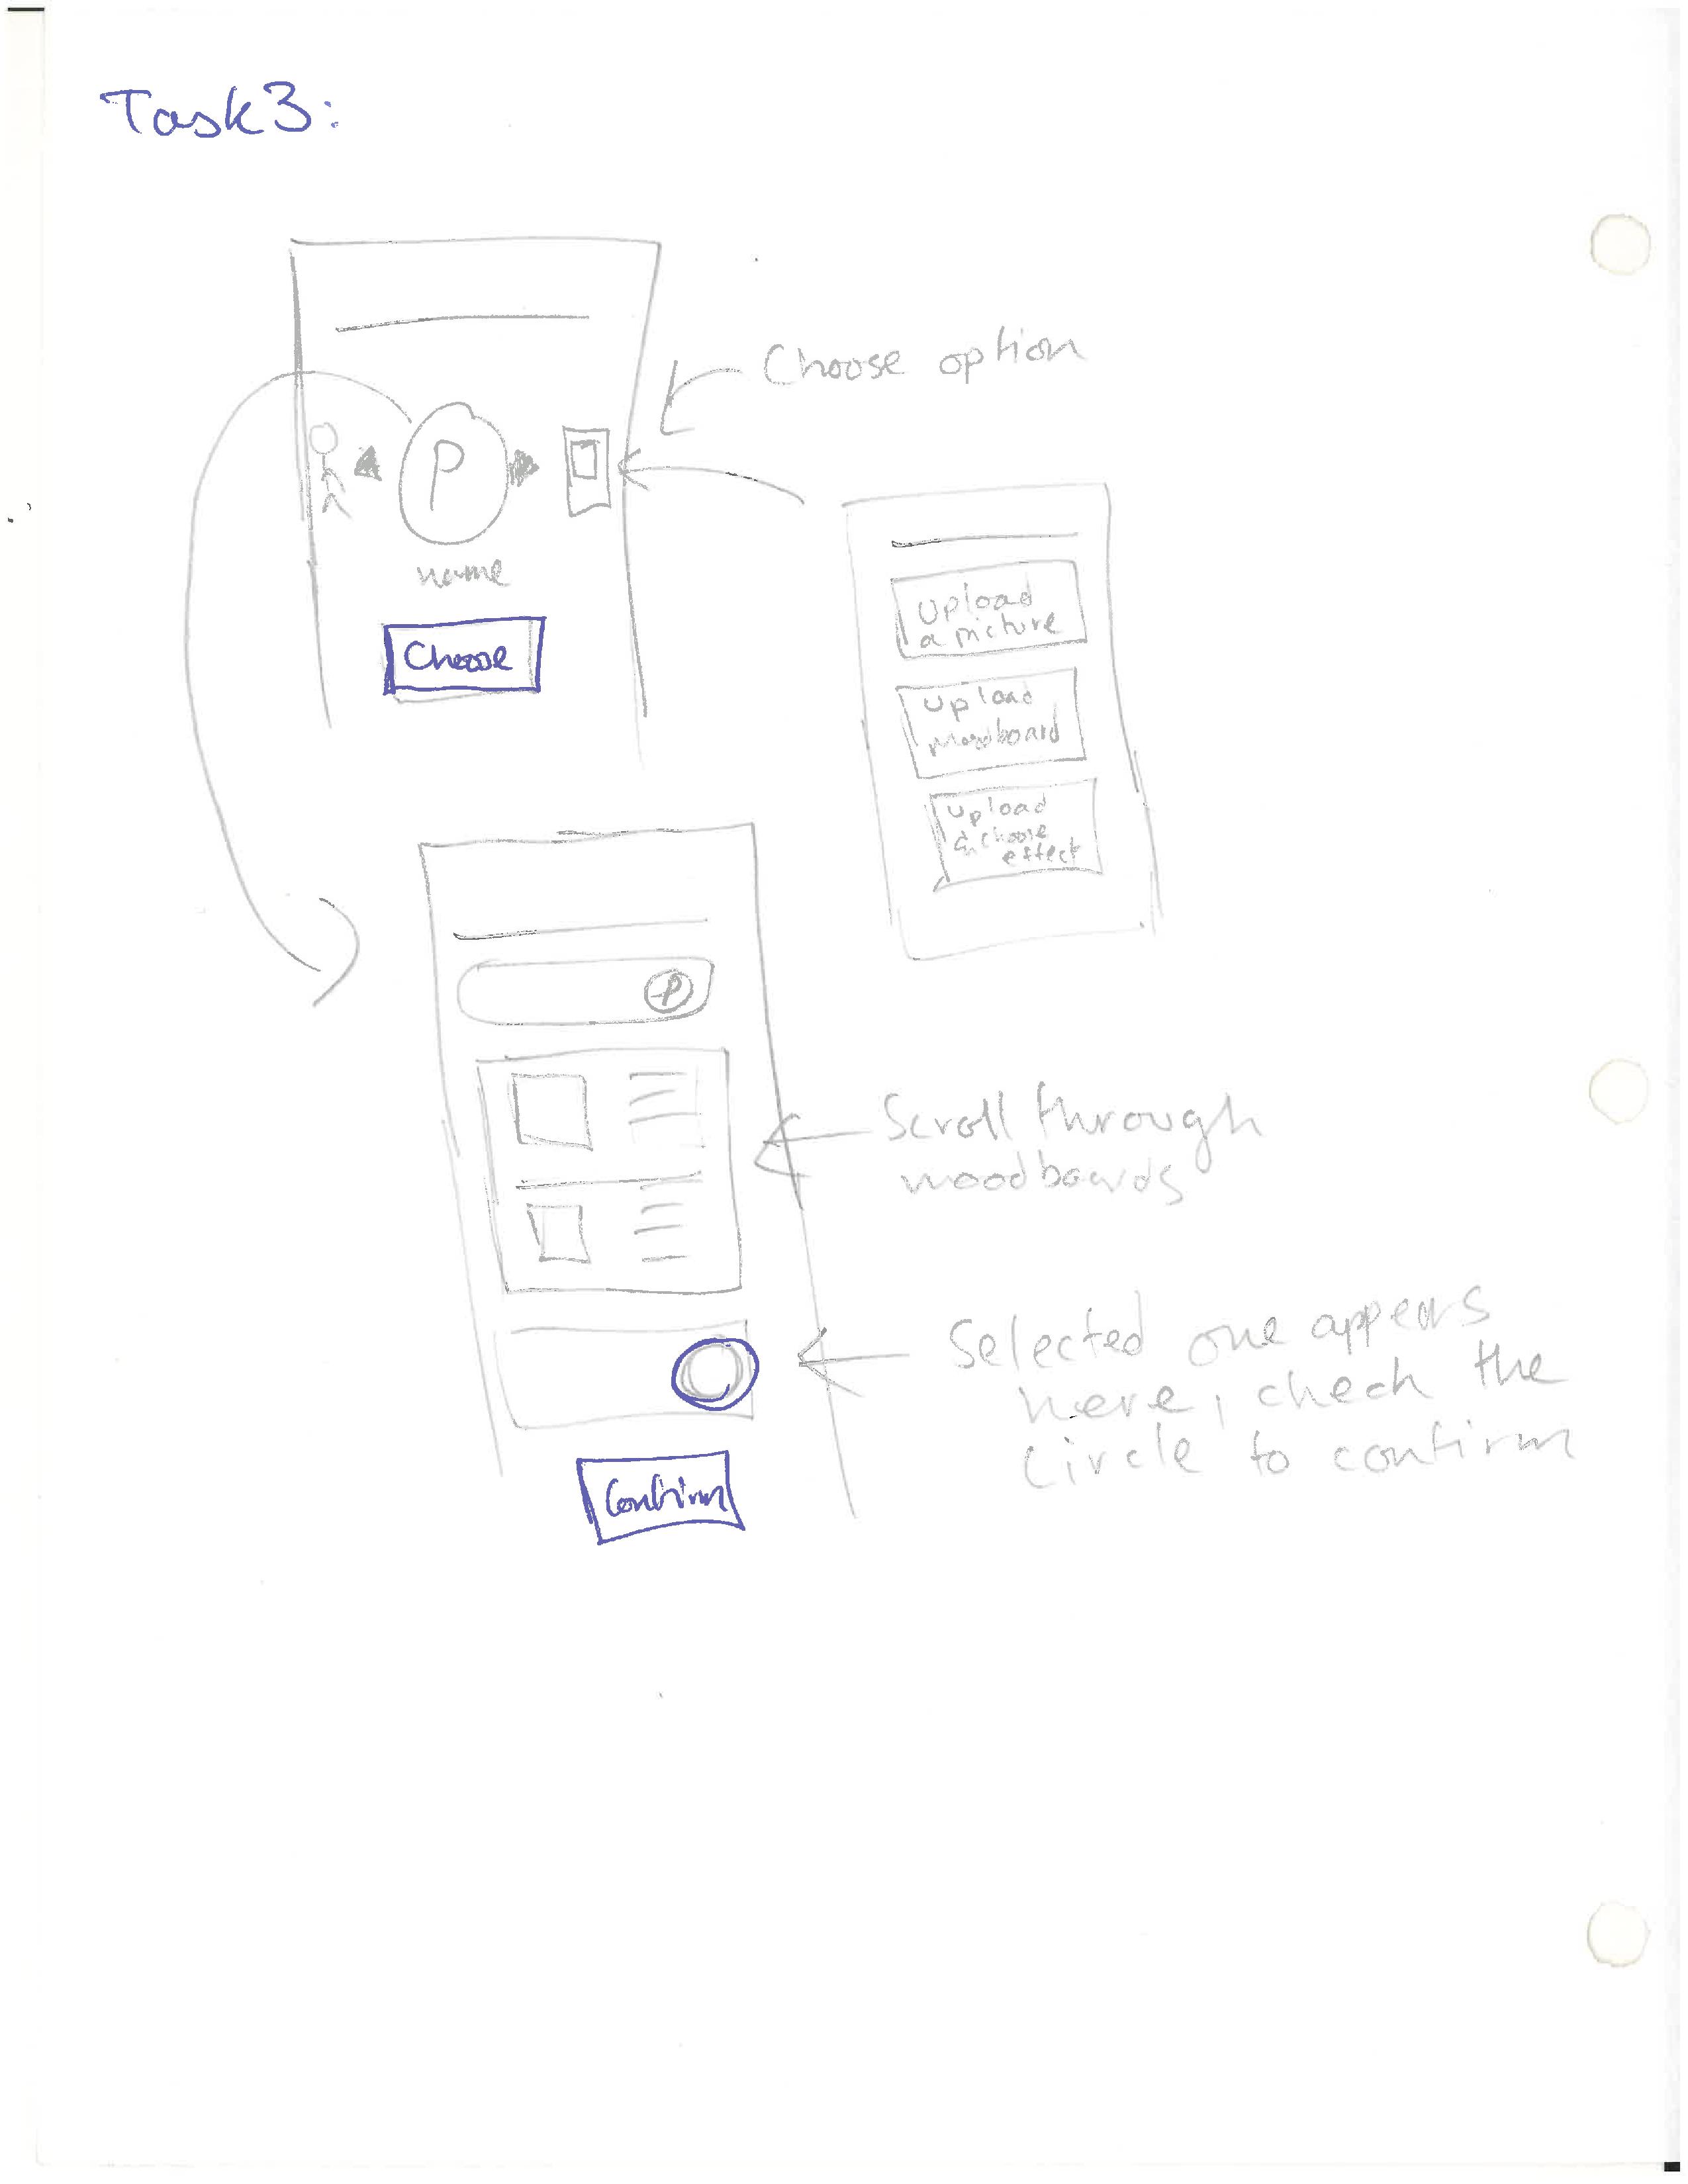 Task 3:
Choose option
P
name
Choose
Upload
a picture
Upload
moodboard
Upload
& choose
effect
P
Scroll through
moodboards
Selected one appears
here, check the
circle to confirm
Confirm